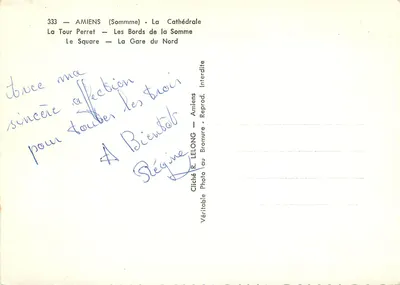 333 — AMIENS (Sommme) - La Cathédrale
La Tour Perret — Les Bords de la Somme
Le Square — La Gare du Nord
Avec ma
sincère affection
pour toutes les trois
A Bientôt
Régine
Cliché R. LELONG — Amiens
Véritable Photo au Bromure - Reprod. Interdite